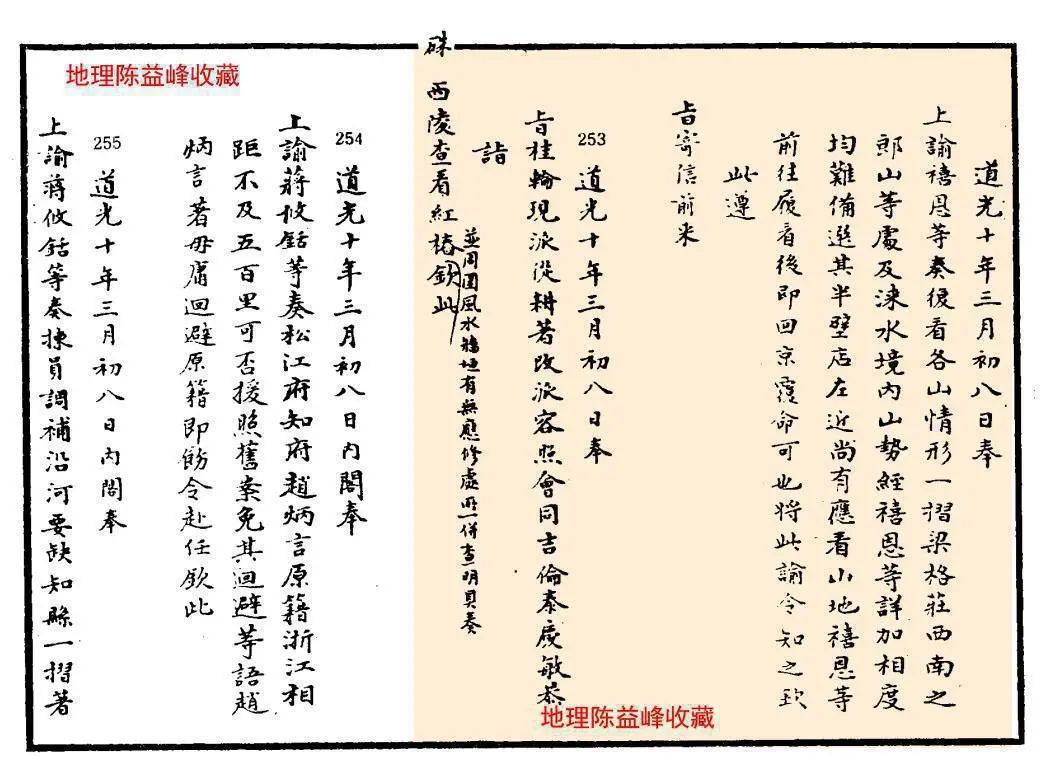 道光十年三月初八日奉
上諭禧恩等奏復看各山情形一摺梁格莊西南之
郎山等處及淶水境內山勢經禧恩等詳加相度
均難備選其半壁店左近尚有應看山地禧恩等
前往履看後即回京覆命可也將此諭令知之欽
此遵
旨寄信前来
253 道光十年三月初八日奉
旨桂輪現派從耕著改派容照會同吉倫泰慶敏恭
詣
並周圍風水牆垣有無應修處所一併查明具奏
西陵查看紅樁欽此
硃
254 道光十年三月初八日內閣奉
上諭蔣攸銛等奏松江府知府趙炳言原籍浙江相
距不及五百里可否援照舊案免其迴避等語趙
炳言著毋庸迴避原籍即飭令赴任欽此
255 道光十年三月初八日內閣奉
上諭蔣攸銛等奏揀員調補沿河要缺知縣一摺著
地理陈益峰收藏
地理陈益峰收藏